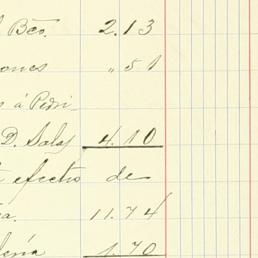 Bco. 2.13
ones „ 51
s á Pedri-
D. Salaj 4.10
efectro de
a. 11.74
ería 1.70